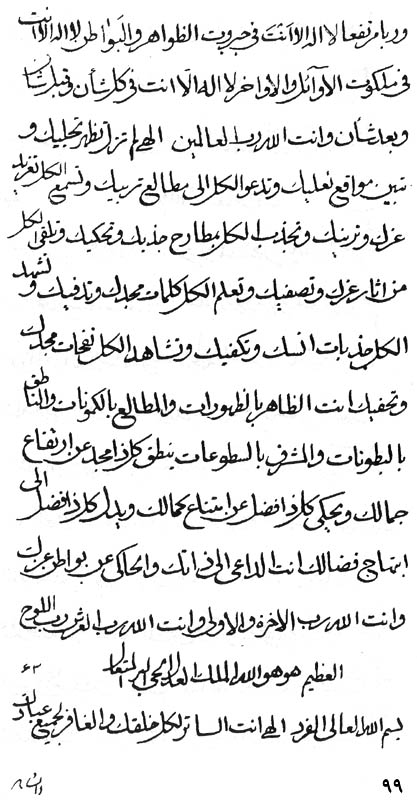 وربا مرتفعا لا اله الا انت في جبروت الظواهر والبواطن لا اله الا انت
في ملكوت الاوائل والاواخر لا اله الا انت في كل شأن وقبل شأن
وبعد شأن وانت الله رب العالمين الهي لم تزل تظهر تجليك و
تبين مواقع تعليك وتدعو الكل الى مطالع تربيك وتسمع الكل تغريد
عزك وتزينك وتجذب الكل بمطارح جذبك وتحكيك وتلقى الكل
من اثار عزك وتصفيك وتعلم الكل كلمات مجدك وتدفيك وتشهد
الكل جذبات انسك وتكفيك وتشاهد الكل نفحات مجدك
وتحفيك انت الظاهر بالظهورات والمطالع بالكمونات والناطق
بالبطونات والمشرق بالسطوعات ينطق كل ذا مجد عن ارتفاع
جمالك ويحكي كل ذا فضل عن امتناع كمالك ويدل كل ذا فضل الى
ابتهاج فضالك انت الداعي الى ذاتك والحاكي عن بواطن عزك
وانت الله رب الاخرة والاولى وانت الله رب العرش رب اللوح
العظيم هو هو الله الملك العدل المتعال ٦٢
بسم الله العالي الفرد الهي انت الساتر لكل خلقك والغافر لجميع عبادك
٩٩